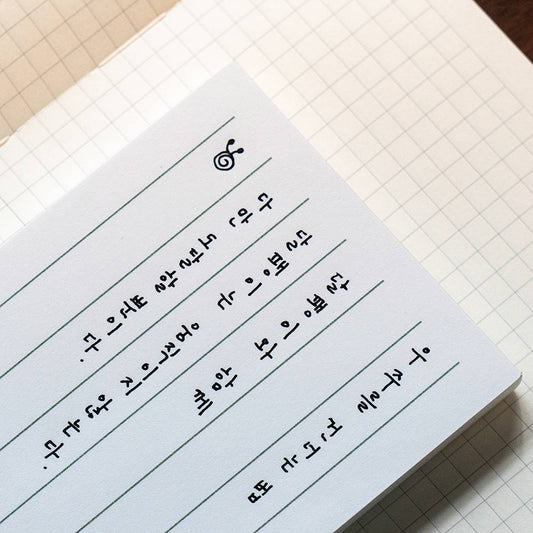 우주를 건너는 법
달팽이와 함께
달팽이는 움직이지 않는다.
다만 도달할 뿐이다.